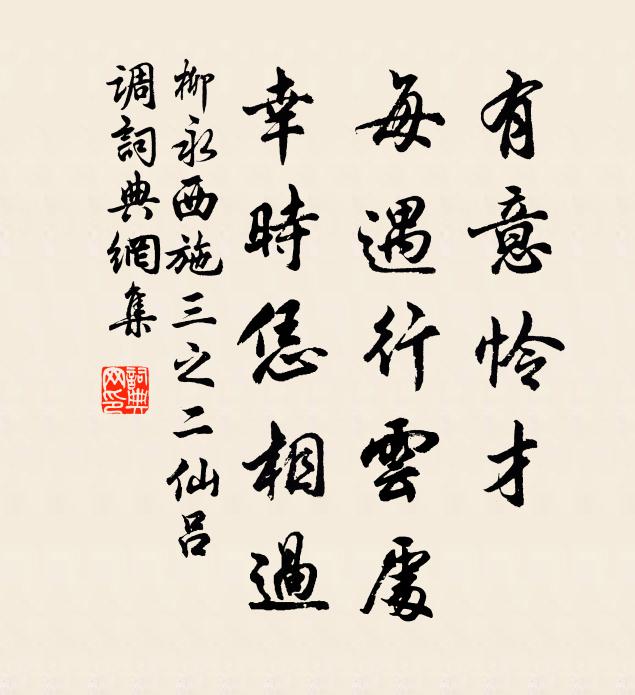 有意怜才
每遇行雲處
幸時恁相過
柳永西施三之二仙呂
调詞典網集
詞典网印